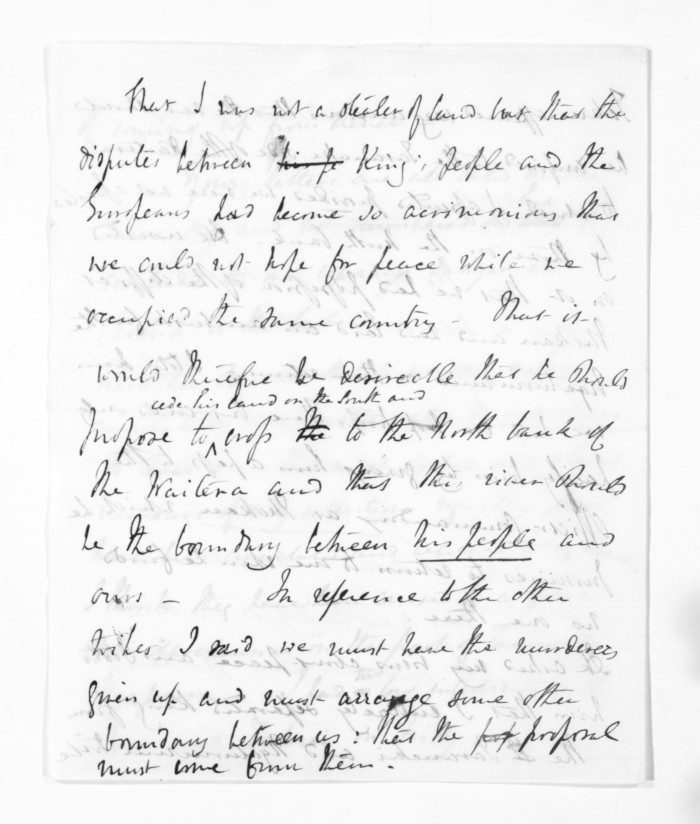 that I was not a stealer of land but that the
disputes between his p King's people and the
Europeans had become so acrimonious that
we could not hope for peace while we
occupied the same country - That it
would therefore be desireable that he should
cede his land on the South and
propose to cross the to the North bank of
the Waitera and that this river should
be the boundary between his people and
ours - In reference to the other
tribes I said we must have the murderers
given up and must arrange some other
boundary between us: that the proposal
must come from them.